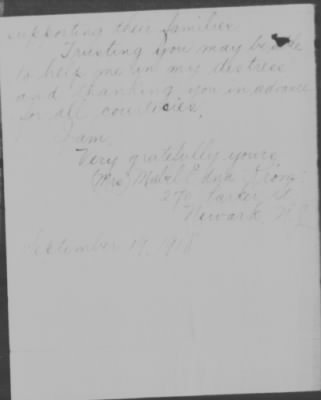 supporting their families.
Trusting you may be able
to help me in my distress
and thanking you in advance
for all courtesies,
I am,
Very gratefully yours,
(Mrs) Mabel Edna
270 Parker St
Newark N J
September 19, 1918